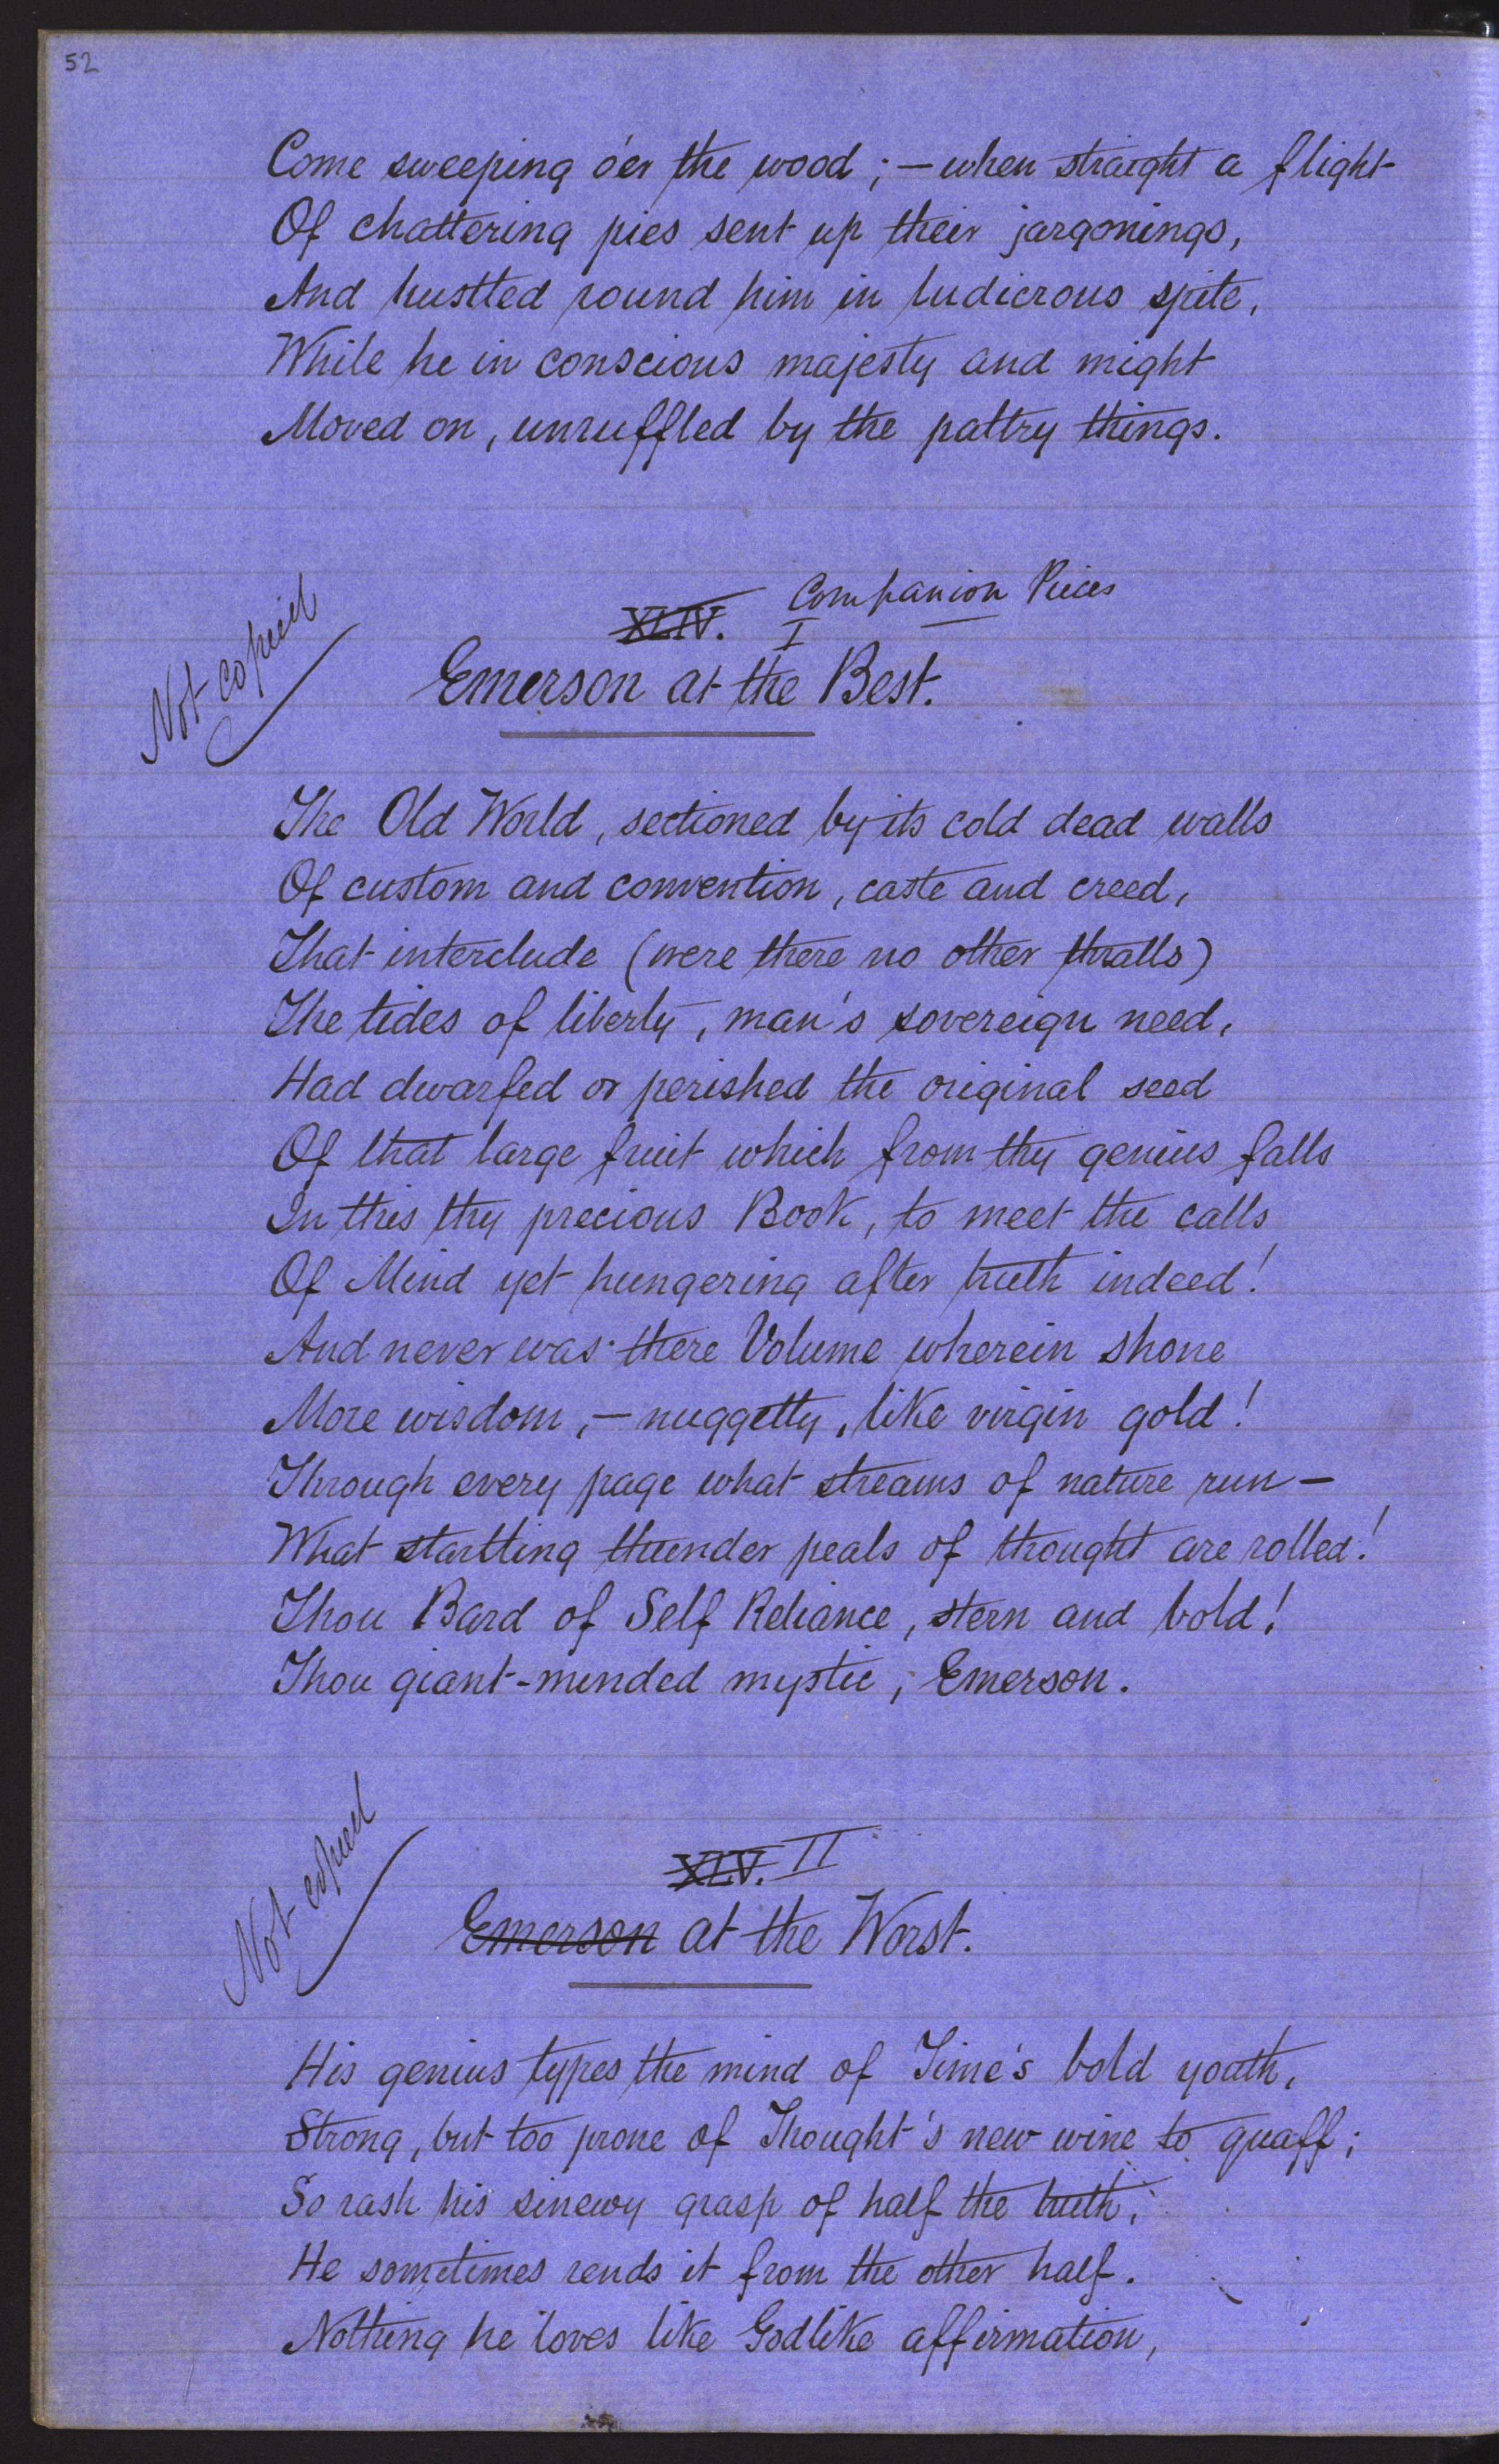 52
Come sweeping o'er the wood; — when straight a flight
Of chattering pies sent up their jargonings,
And hustled round him in ludicrous spite,
While he in conscious majesty and might
Moved on, unruffled by the paltry things.
Not copied
XLIV. Companion Pieces
I
Emerson at the Best.
The Old World, sectioned by its cold dead walls
Of custom and convention, caste and creed,
That interclude (were there no other thralls)
The tides of liberty, man's sovereign need,
Had dwarfed or perished the original seed
Of that large fruit which from thy genius falls
In this thy precious Book, to meet the calls
Of Mind yet hungering after truth indeed!
And never was there Volume wherein shone
More wisdom, — nuggetty, like virgin gold!
Through every page what streams of nature run —
What startling thunder peals of thought are rolled!
Thou Bard of Self Reliance, stern and bold!
Thou giant-minded mystic, Emerson.
Not copied
XLV. II
Emerson at the Worst.
His genius types the mind of Time's bold youth,
Strong, but too prone of Thought's new wine to quaff;
So rash his sinewy grasp of half the truth,
He sometimes rends it from the other half.
Nothing he loves like Godlike affirmation,